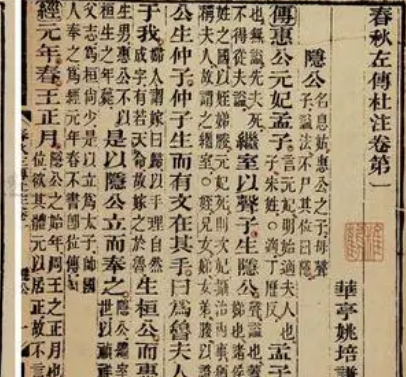 春秋左傳杜注卷第一
華亭姚培謙
隱公 名息姑惠公之子母聲
子謚法不尸其位曰隱
傳惠公元妃孟子 言元妃明始適夫人也
子朱姓。適丁歷反 孟子
也無謚先夫死
不得從夫謚 繼室以聲子生隱公 聲謚也蓋
姓之國以姪娣媵元妃死則次妃攝治內事猶
稱夫人故謂之繼室。姪兄女娣女弟媵以證
公生仲子仲子生而有文在其手曰爲魯夫人
于我 婦人謂嫁曰歸以手理自然
成字有若天命故嫁之於魯 生桓公而惠
生男惠公不以
桓生之年薨 是以隱公立而奉之 隱公繼室
世以禎祥
父志爲桓尚少是以立爲太子帥國
人奉之爲經元年春不書即位傳
經元年春王正月 隱公之始年周王之正月也
位欲其體元以居正故不言